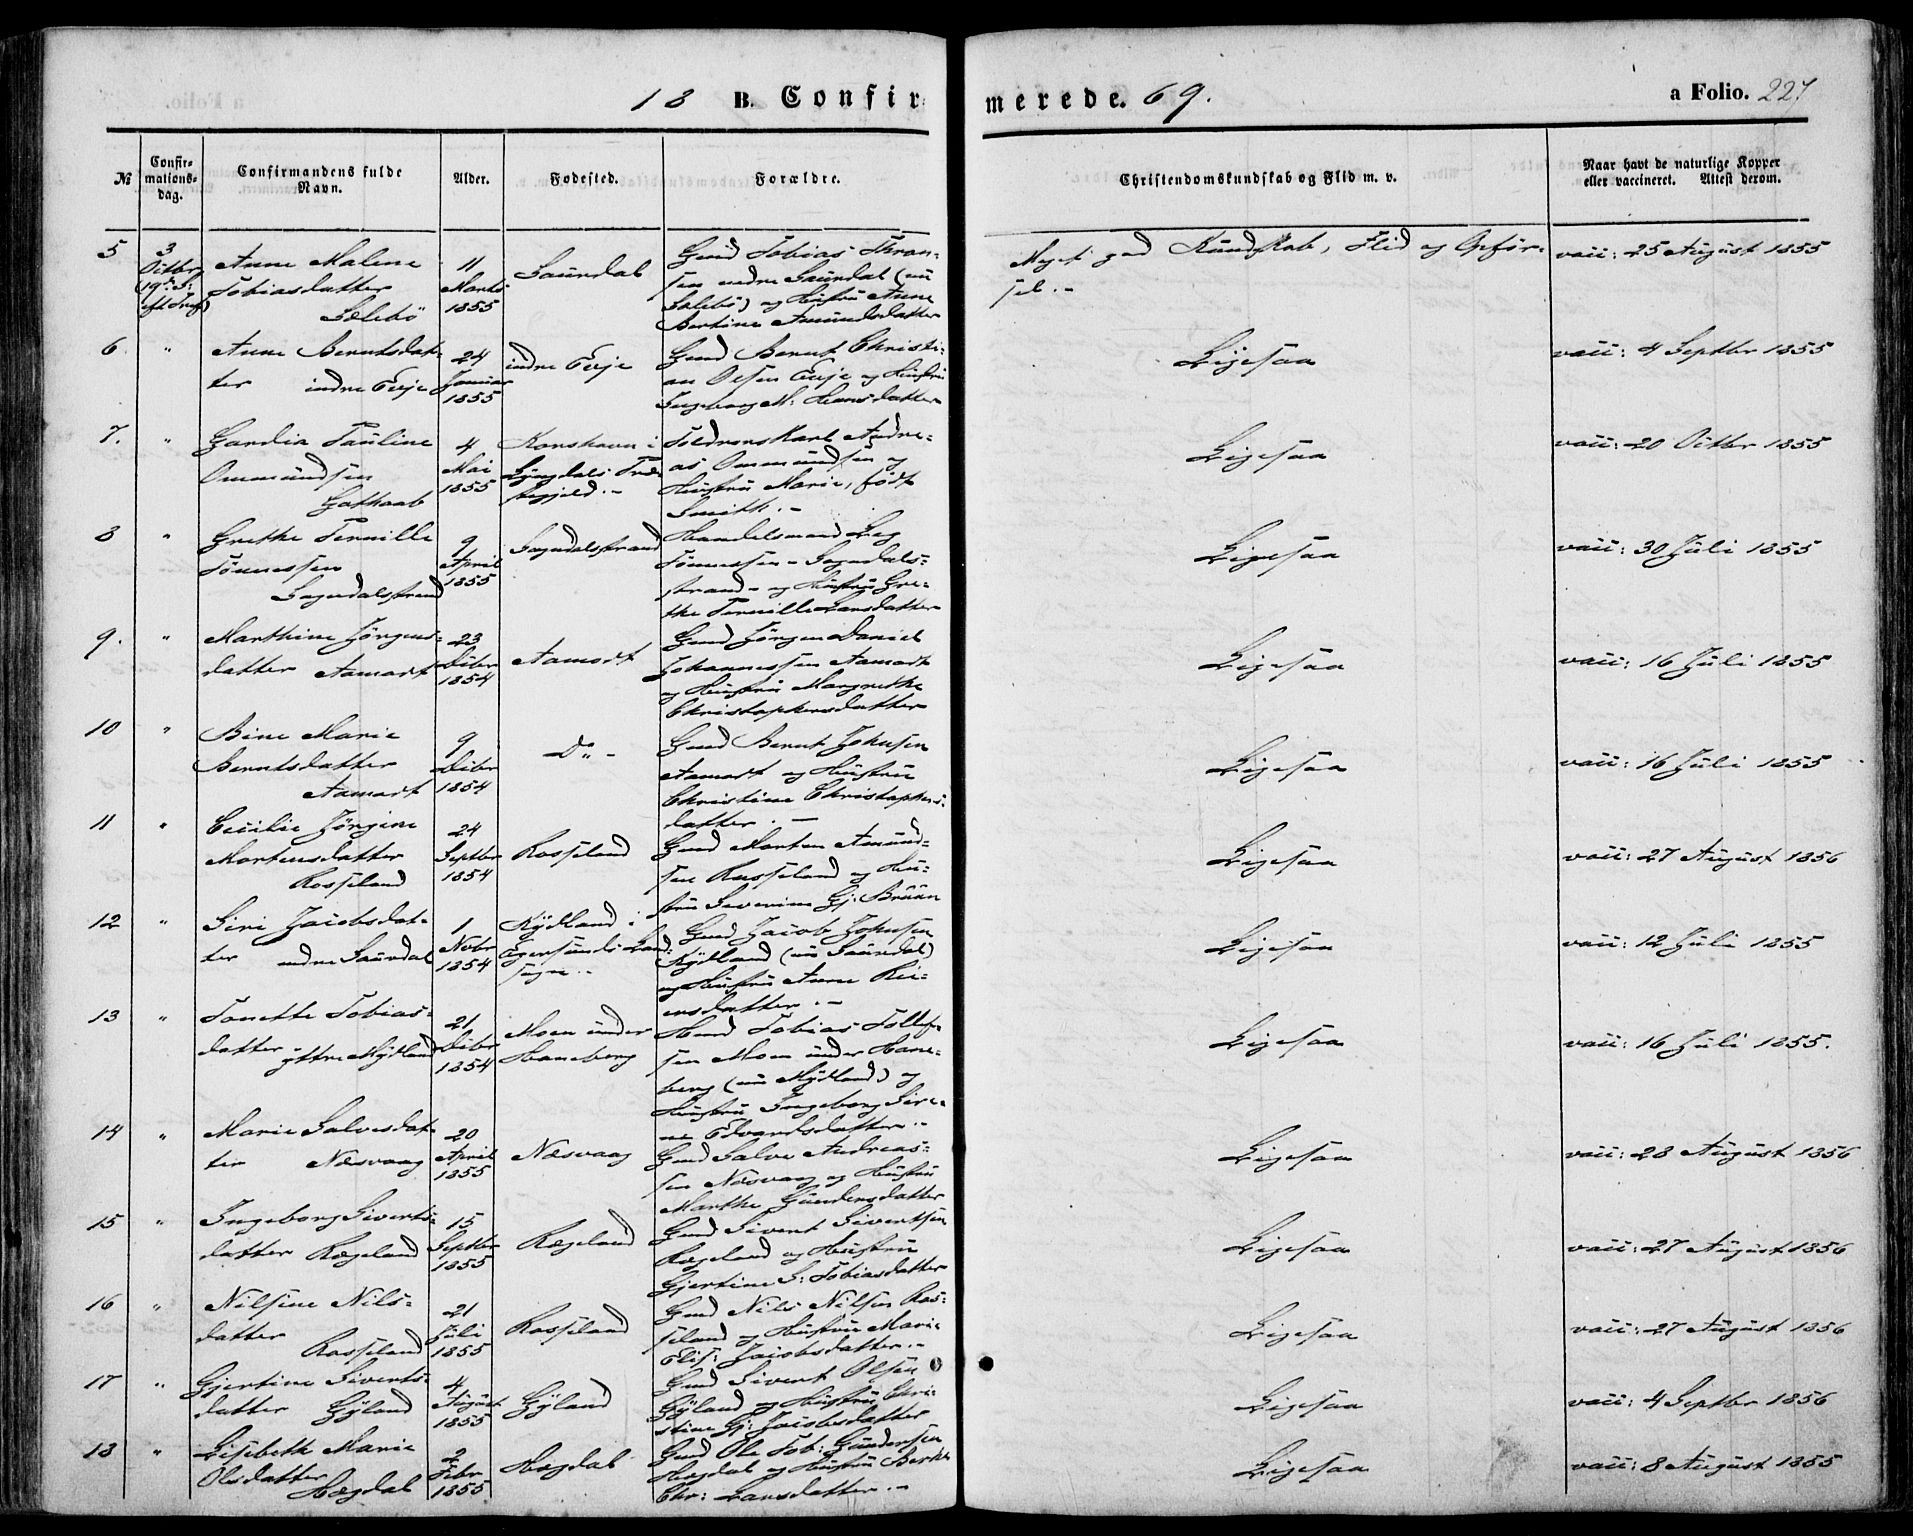 18 B. Confirmerede. 69. a Folio. 227
№ Confirmationsdag. Confirmandens fulde Navn. Alder. Fødested. Forældre. Christendomskundskab og Flid m. v. Naar havt de naturlige Kopper eller vaccineret. Attest derom.
5 3 Octbr 19de S: eft Tref) Anne Malene Tobiasdatter Sælebö 11 Marts 1855 Saurdal Gmd Tobias Thransen nedre Saurdal (nu Sælebö) og Hustru Anne Bertine Amundsdatter Meget god Kundskab, Flid og Opförsel. - vacc: 25 August 1855
6. " Anne Berntsdatter indre Evje 24 Januar 1855 indre Evje Gmd Bernt Christian Olsen Evje og Hustru Ingeborg M: Hansdatter Ligesaa vacc: 4 Septbr 1855
7. " Gardia Pauline Ommundsen Gothaab 4 Mai 1855 Korshavn i Lyngdals Præstegjeld. - Toldroerskarl Andreas Ommundsen og Hustru Marie, född Smith. - Ligesaa vacc: 20 Octbr 1855
8 " Grethe Pernille Tönnessen Sogndalsstrand 9 April 1855 Sogndalsstrand Handelsmand Leg Tönnessen - Sogndalsstrand - og Hustru Grethe Pernille Larsdatter Ligesaa vacc: 30 Juli 1855
9. " Marthine Jörgensdatter Aamodt 23 Decbr 1854 Aamodt Gmd Jörgen Daniel Johannessen Aamodt og Hustru Margrethe Christophersdatter Ligesaa vacc: 16 Juli 1855
10 " Bine Marie Berntsdatter Aamodt 9 Decbr 1854 Do - Gmd Bernt Johnsen Aamodt og Hustru Christine Christophersdatter. - Ligesaa vacc: 16 Juli 1855
11 " Cecilie Jörgine Mortensdatter Rosseland 24 Septbr 1854 Rosseland Gmd Morten Amundsen Rosseland og Hustru Severine Gj: Bruun Ligesaa vacc: 27 August 1856
12 " Siri Jacobsdatter nedre Saurdal 1 Novbr 1854 Kydland i Egersunds Landsogn. - Gmd Jacob Johnsen Kydland (nu Saurdal) og Hustru Anne Reiersdatter. - Ligesaa vacc: 12 Juli 1855
13 " Tonette Tobiasdatter yttre Mydland 21 Decbr 1854 Moen under Haneberg Hmd Tobias Tollefsen Moen under Haneberg (nu Mydland) og Hustru Ingeborg Sirene Edvardsdatter. - Ligesaa vacc: 16 Juli 1855.
14 " Marie Salvesdatter Næsvaag 20 April 1855 Næsvaag Gmd Salve Andreassen Næsvaag og Hustru Marthe Gundersdatter Ligesaa vacc: 28 August 1856
15 " Ingeborg Sivertsdatter Rægeland 15 Septbr 1855 Rægeland Gmd Sivert Sivertsen Rægeland og Hustru Gjertine S: Tobiasdatter Ligesaa vacc: 27 August 1856
16 " Nilsine Nilsdatter Rosseland 21 Juli 1855 Rosseland Gmd Nils Nilsen Rosseland og Hustru Marie Elis: Jacobsdatter. - Ligesaa vacc: 27 August 1856
17 " Gjertine Sivertsdatter Gyland 4 August 1855 Gyland Gmd Sivert Olsen Gyland og Hustru Christine Gj: Jacobsdatter Ligesaa vacc: 4 Septbr 1856
18 " Lisebeth Marie Olsdatter Hægdal 2 Febr 1855 Hægdal Gmd Ole Tob: Gundersen Hægdal og Hustru Berthe Chr: Larsdatter. - Ligesaa vacc: 8 August 1855